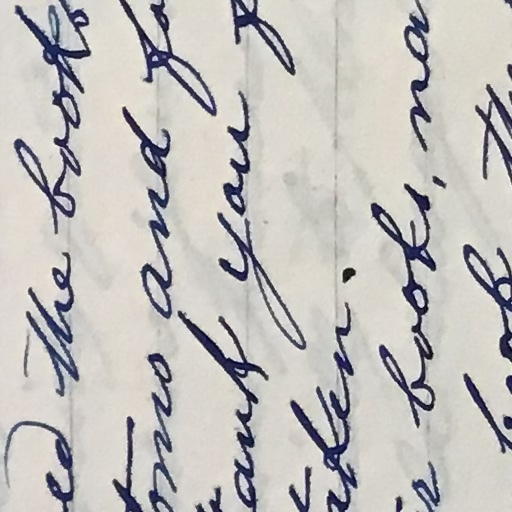 ed the books
tomo and fo
tank you f
aken.
r books, na
book the